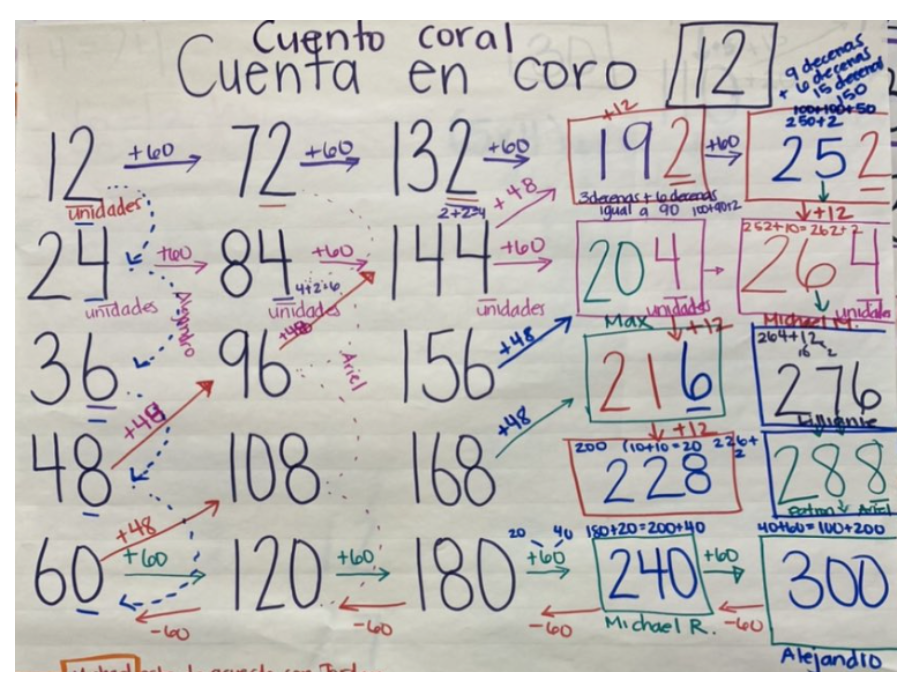 Cuento coral
Cuenta en coro 12
9 decenas
+ 6 decenas
15 decenas
150
100+100+50
250+2
12 +60 72 +60 132 +60 192 +60 252
+12
unidades
2+2=4
+48
3 decenas + 6 decenas
igual a 90 100+90+2
+12
252+10=262+2
24 +60 84 +60 144 +60 204 264
unidades
4+2=6
unidades
unidades
unidades
unidades
Alejandro
+48
Max
+12
Michael M.
36 96 156 +48 216 276
Ariel
264+12
10 2
+48
+48
+12
200 (10+10=20 226+
2
48 108 168 228 288
+48
Ariel
20 40
180+20=200+40
40+60=100+200
60 +60 120 +60 180 +60 240 +60 300
-60 -60 -60 -60
Michael R.
Alejandro